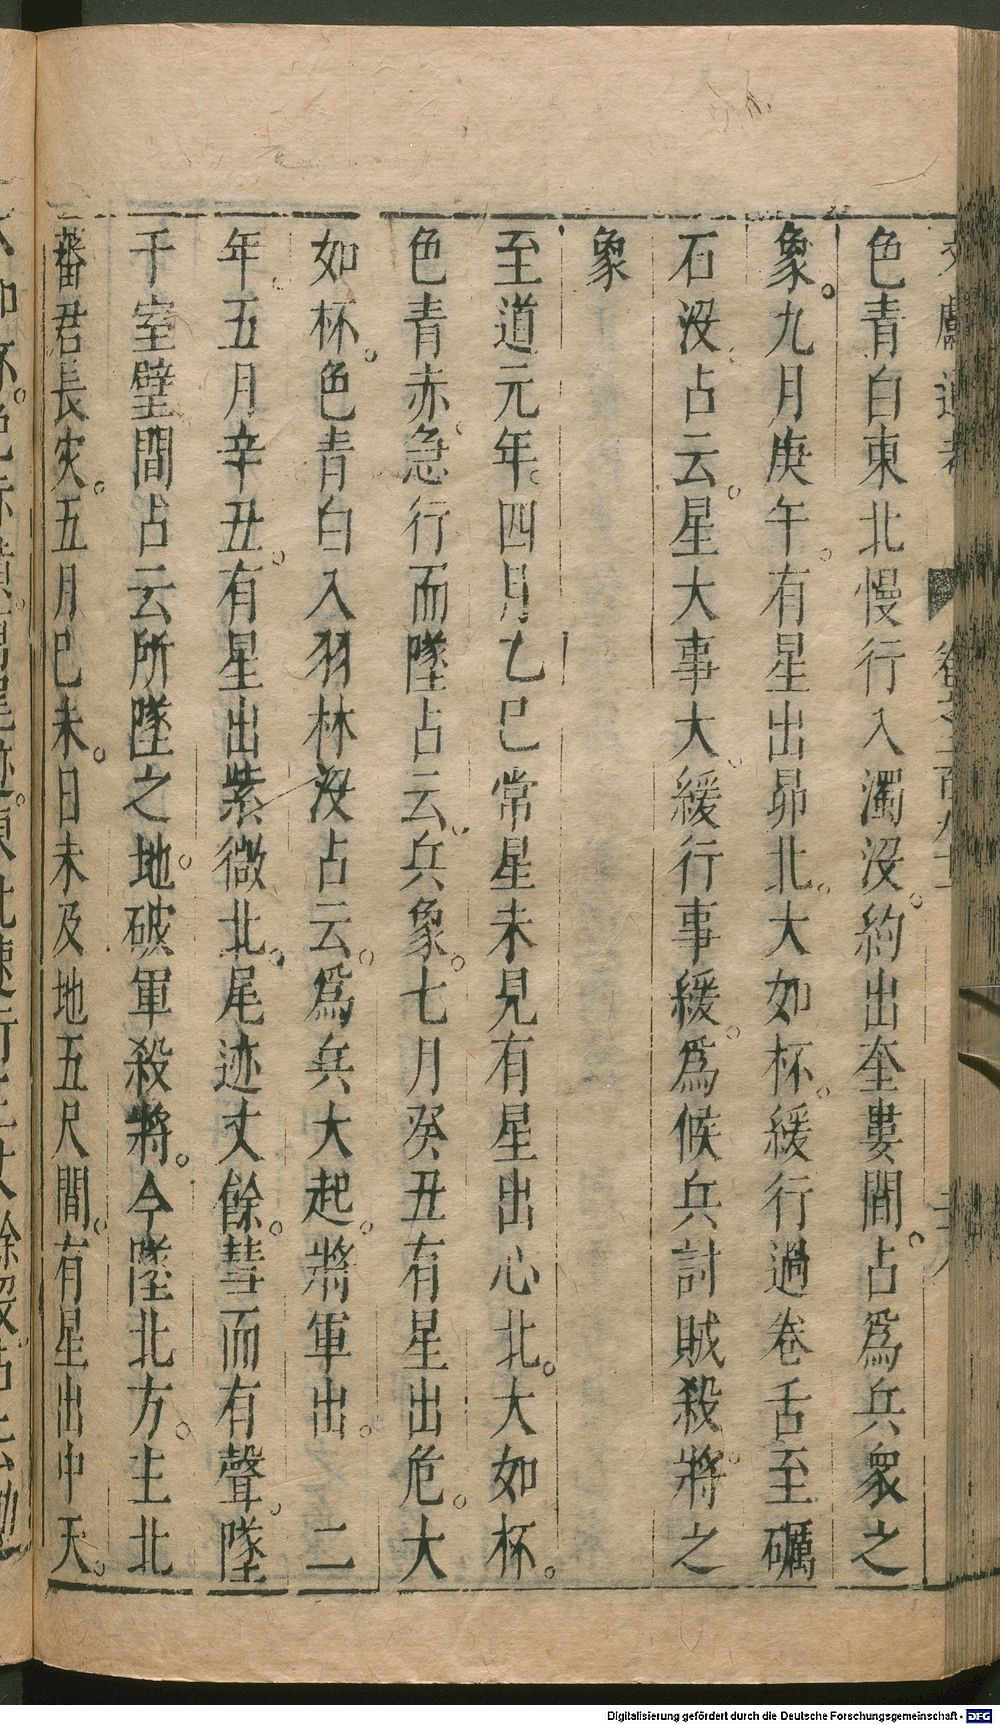 色青白東北慢行入濁沒。約出奎婁間。占爲兵衆之
象。九月庚午。有星出昴北。大如杯。緩行過卷舌至礪
石沒。占云。星大事大。緩行事緩。爲候兵討賊殺將。之
象
至道元年。四月乙巳常星未見有星出心北。大如杯。
色青赤。急行而墜占云。兵象。七月癸丑有星出危。大
如杯。色青白入羽林沒占云。爲兵大起。將軍出。二
年。五月辛丑。有星出紫微北。尾迹丈餘。彗而有聲。墜
于室壁間占云所墜之地。破軍殺將。今墜北方。主北
蕃君長灾。五月巳未。日未及地五尺間。有星出中天。
Digitalisierung gefördert durch die Deutsche Forschungsgemeinschaft - DFG